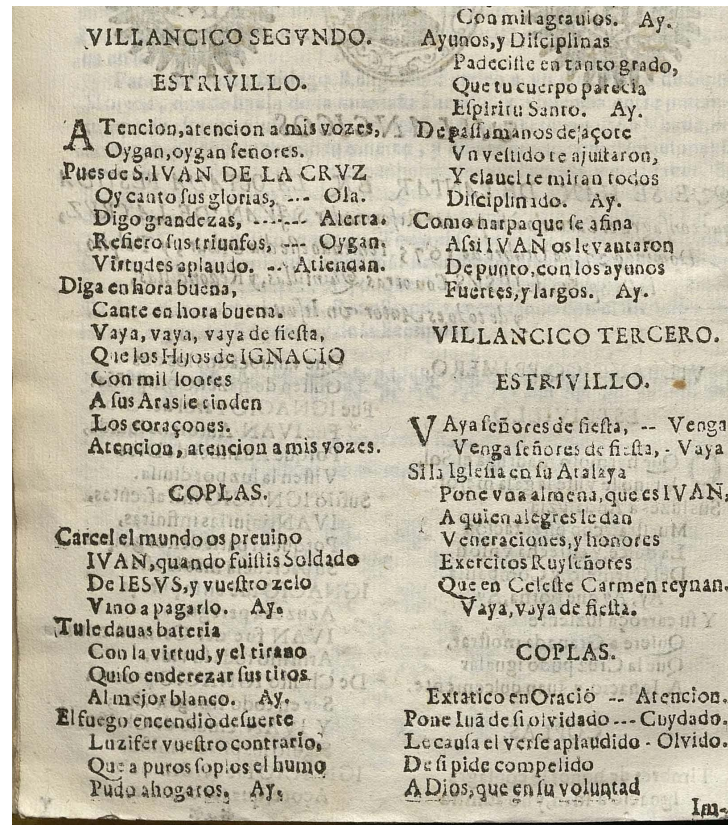 VILLANCICO SEGVNDO.
ESTRIVILLO.
ATencion, atencion a mis vozes,
Oygan, oygan señores.
Pues de S. IVAN DE LA CRVZ
Oy canto sus glorias, --- Ola.
Digo grandezas, ------ Alerta.
Refiero sus triunfos, --- Oygan.
Virtudes aplaudo. -- Atiendan.
Diga en hora buena,
Cante en hora buena.
Vaya, vaya, vaya de fiesta,
Que los Hijos de IGNACIO
Con mil loores
A sus Aras le rinden
Los coraçones.
Atencion, atencion a mis vozes.
COPLAS.
Carcel el mundo os preuino
IVAN, quando fuistis Soldado
De IESVS, y vuestro zelo
Vino a pagarlo. Ay.
Tu le dauas bateria
Con la virtud, y el tirano
Quiso enderezar sus tiros
Al mejor blanco. Ay.
El fuego encendiò de suerte
Luzifer vuestro contrario,
Que a puros soplos el humo
Pudo ahogaros. Ay.
Con mil agrauios. Ay.
Ayunos, y Disciplinas
Padeciste en tanto grado,
Que tu cuerpo parecia
Espiritu Santo. Ay.
De passamanos de açote
Vn vestido te ajustaron,
Y clauel te miran todos
Disciplinado. Ay.
Como harpa que se afina
Assi IVAN os levantaron
De punto, con los ayunos
Fuertes, y largos. Ay.
VILLANCICO TERCERO.
ESTRIVILLO.
VAya señores de fiesta, -- Venga
Venga señores de fiesta, - Vaya
Si la Iglesia en su Atalaya
Pone vna almena, que es IVAN,
A quien alegres le dan
Veneraciones, y honores
Exercitos Ruyseñores
Que en Celeste Carmen reynan.
Vaya, vaya de fiesta.
COPLAS.
Extatico en Oraciõ -- Atencion.
Pone Iuã de si olvidado --- Cuydado.
Le causa el verse aplaudido - Olvido.
De si pide compelido
A Dios, que en su voluntad
Im-